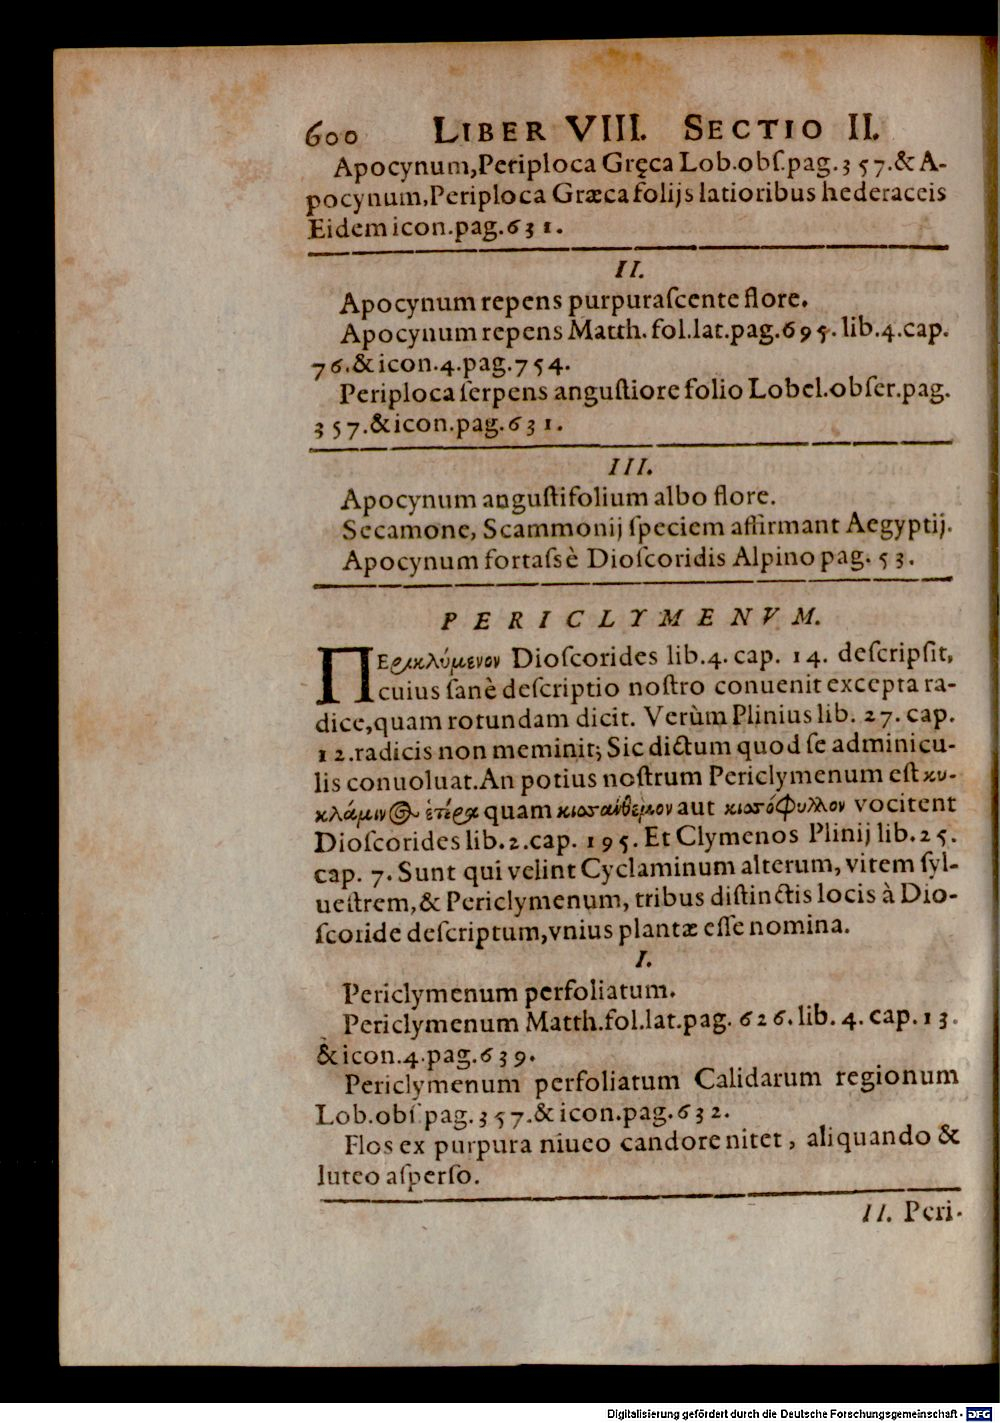 600 LIBER VIII. SECTIO II.
Apocynum,Periploca Gręca Lob.obſ.pag.357.& A-
pocynum,Periploca Græca folijs latioribus hederaceis
Eidem icon.pag.631.
II.
Apocynum repens purpuraſcente flore.
Apocynum repens Matth.fol.lat.pag.695.lib.4.cap.
76.& icon.4.pag.754.
Periploca ſerpens anguſtiore folio Lobel.obſer.pag.
357.& icon.pag.631.
III.
Apocynum anguſtifolium albo flore.
Secamone, Scammonij ſpeciem affirmant Aegyptij.
Apocynum fortaſsè Dioſcoridis Alpino pag. 53.
PERICLYMENVM.
ΠΕρικλύμενον Dioſcorides lib.4. cap. 14. deſcripſit,
cuius ſanè deſcriptio noſtro conuenit excepta ra-
dice,quam rotundam dicit. Verùm Plinius lib. 27. cap.
12.radicis non meminit; Sic dictum quod ſe adminicu-
lis conuoluat.An potius noſtrum Periclymenum eſt κυ-
κλάμινος ἑτέρα quam κισσάνθεμον aut κισσόφυλλον vocitent
Dioſcorides lib.2.cap. 195. Et Clymenos Plinij lib.25.
cap. 7. Sunt qui velint Cyclaminum alterum, vitem ſyl-
ueſtrem,& Periclymenum, tribus diſtinctis locis à Dio-
ſcoride deſcriptum,vnius plantæ eſſe nomina.
I.
Periclymenum perfoliatum.
Periclymenum Matth.fol.lat.pag. 626.lib. 4. cap.13.
& icon.4.pag.639.
Periclymenum perfoliatum Calidarum regionum
Lob.obſ.pag.357.& icon.pag.632.
Flos ex purpura niueo candore nitet, aliquando &
luteo aſperſo.
II. Peri-
Digitalisierung gefördert durch die Deutsche Forschungsgemeinschaft - DFG